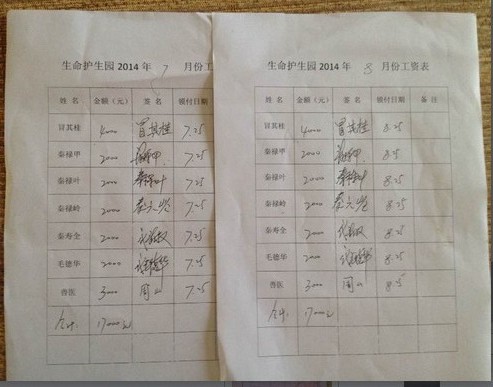 生命护生园 2014 年 7 月份工
姓 名 金额（元） 签 名 领付日期
冒其桂 4000 冒其桂 7.25
秦禄甲 2000 7.25
秦禄叶 2000 秦禄叶 7.25
秦禄岭 2000 7.25
秦寿全 2000 7.25
毛德华 2000 7.25
兽医 3000 7.25
合计 17000元
生命护生园 2014 年 8 月份工资表
姓 名 金额（元） 签 名 领付日期 备 注
冒其桂 4000 冒其桂 8.25
秦禄甲 2000 8.25
秦禄叶 2000 秦禄叶 8.25
秦禄岭 2000 8.25
秦寿全 2000 8.25
毛德华 2000 8.25
兽医 3000 8.25
合计 17000元